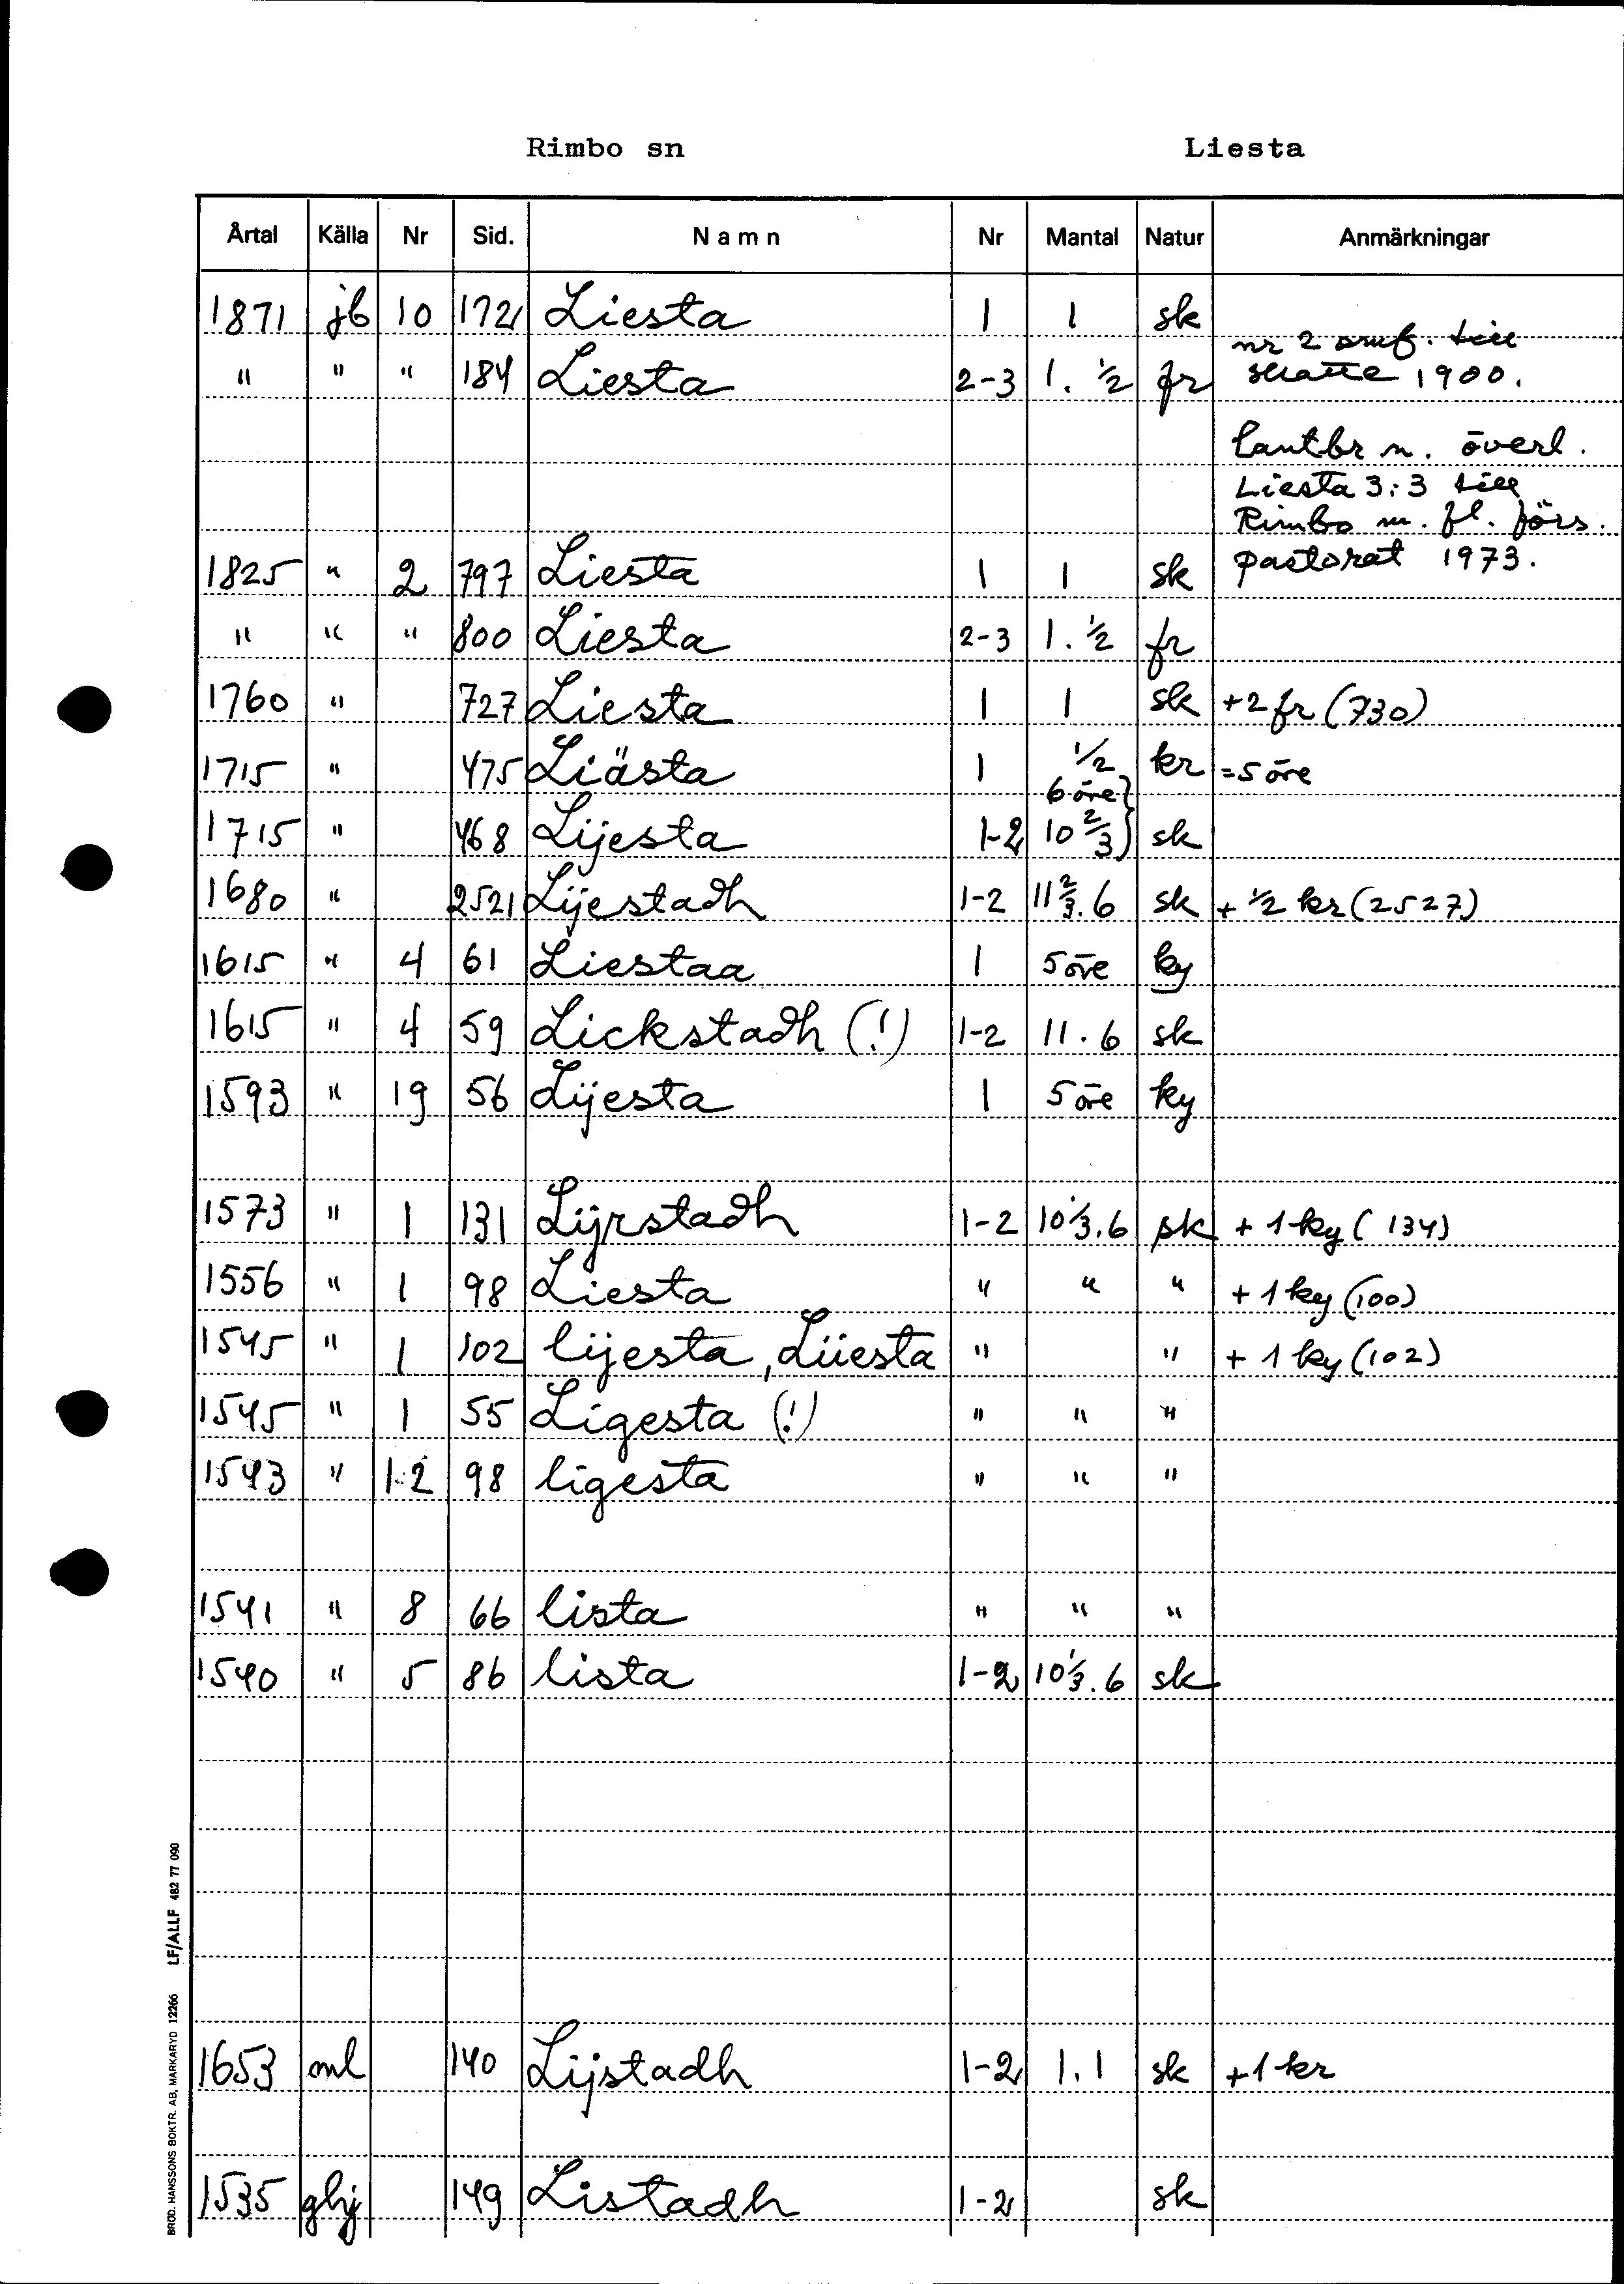 Rimbo sn Liesta
Årtal Källa Nr Sid. Namn Nr Mantal Natur Anmärkningar
1871 jb 10 172 Liesta 1 1 sk
nr 2 omf. till
" " " 184 Liesta 2-3 1. ½ fr skatte 1900.
Lantbr n. överl.
Liesta 3:3 till
Rimbo m. fl. förs.
1825 " 2 797 Liesta 1 1 sk pastorat 1973.
" " " 800 Liesta 2-3 1. ½ fr
1760 " 727 Liesta 1 1 sk +2 fr (730)
1715 " 475 Liästa 1 ½ kr =5 öre
6 öre}
1715 " 468 Lijesta 1-2 10 2/3} sk
1680 " 2521 Lijestadh 1-2 11 2/3. 6 sk + ½ kr (2527)
1615 " 4 61 Liestaa 1 5 öre ky
1615 " 4 59 Lickstadh (!) 1-2 11. 6 sk
1593 " 19 56 Lijesta 1 5 öre ky
1573 " 1 131 Lijrstadh 1-2 10 1/3. 6 sk + 1 ky (134)
1556 " 1 98 Liesta " " " + 1 ky (100)
1545 " 1 102 lijesta, Liiesta " " + 1 ky (102)
1545 " 1 55 Ligesta (!) " " "
1543 " 1-2 98 ligesta " " "
1541 " 8 66 lista " " "
1540 " 5 86 lista 1-2 10 1/3. 6 sk
1653 ml 140 Lijstadh 1-2 1. 1 sk +1 kr
1535 ghj 149 Listadh 1-2 sk
BROD. HANSSONS BOKTR. AB, MARKARYD 12266 LF/ALLF 482 77 090